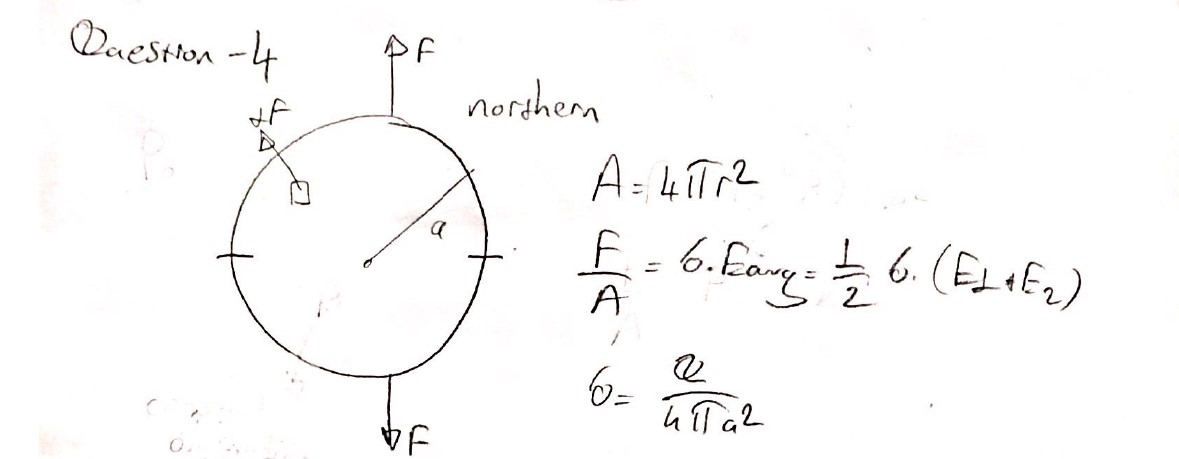 Question - 4
F
F
northern
a
A = 4πr²
F/A = σ.Eavg = 1/2 σ. (E1+E2)
σ = Q/4πa²
F